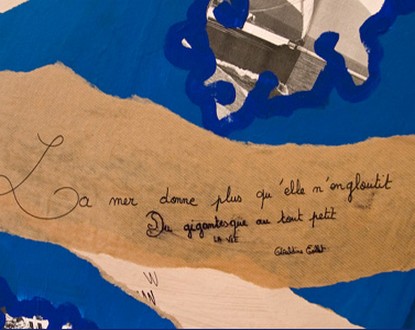 La mer donne plus qu'elle n'engloutit
Du gigantesque au tout petit
LA VIE
Géraldine